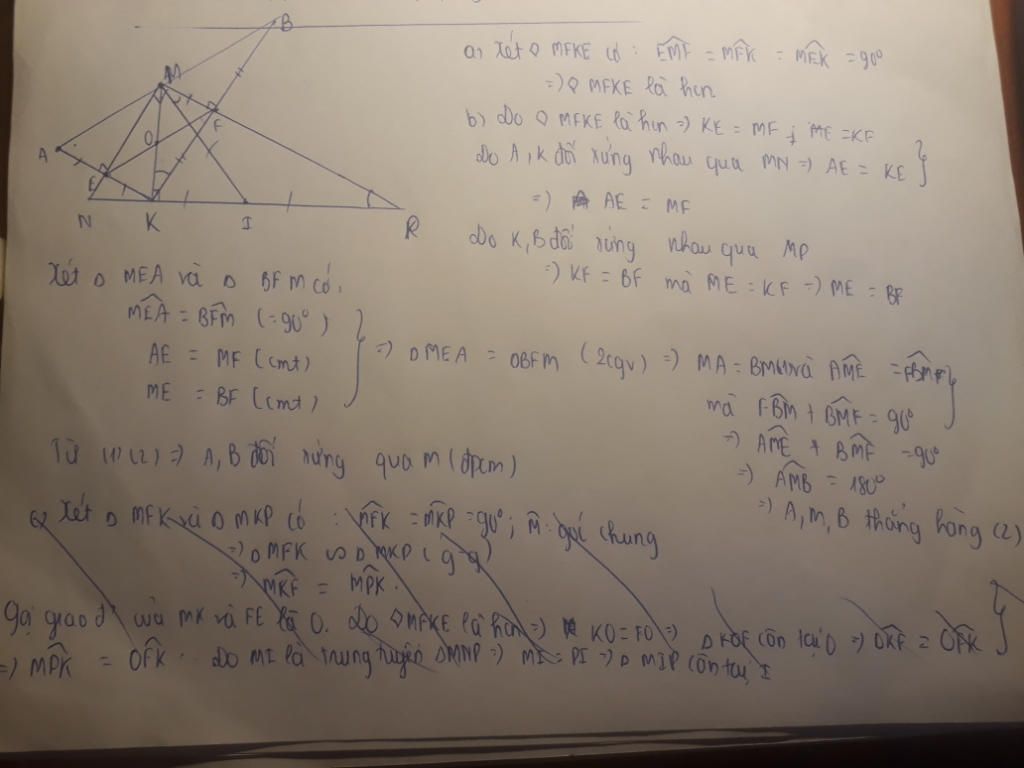 B
M
F
O
A
E
N
K
I
P
a) Xét ◊ MFKE có : EMF = MFK = MEK = 90°
=> ◊ MFKE là hcn
b) Do ◊ MFKE là hcn => KE = MF ; ME = KF
Do A, K đối xứng nhau qua MN => AE = KE
=> AE = MF
Do K, B đối xứng nhau qua MP
=> KF = BF mà ME = KF => ME = BF
Xét Δ MEA và Δ BFM có:
MEA = BFM (= 90°)
AE = MF (cmt)
ME = BF (cmt)
=> Δ MEA = Δ BFM (2cgv) => MA = BM (1) và AME = FBM
mà FBM + BMF = 90°
=> AME + BMF = 90°
=> AMB = 180°
=> A, M, B thẳng hàng (2)
Từ (1) (2) => A, B đối xứng qua M (đpcm)
c) Xét Δ MFK và Δ MKP có : MFK = MKP = 90° ; M : góc chung
=> Δ MFK ∽ Δ MKP (g-g)
=> MKF = MPK.
Gọi giao đ' của MK và FE là O. Do ◊ MFKE là hcn => KO = FO => Δ KOF cân tại O => OKF = OFK
=> MPK = OFK . Do MI là trung tuyến Δ MNP => MI = PI => Δ MIP cân tại I